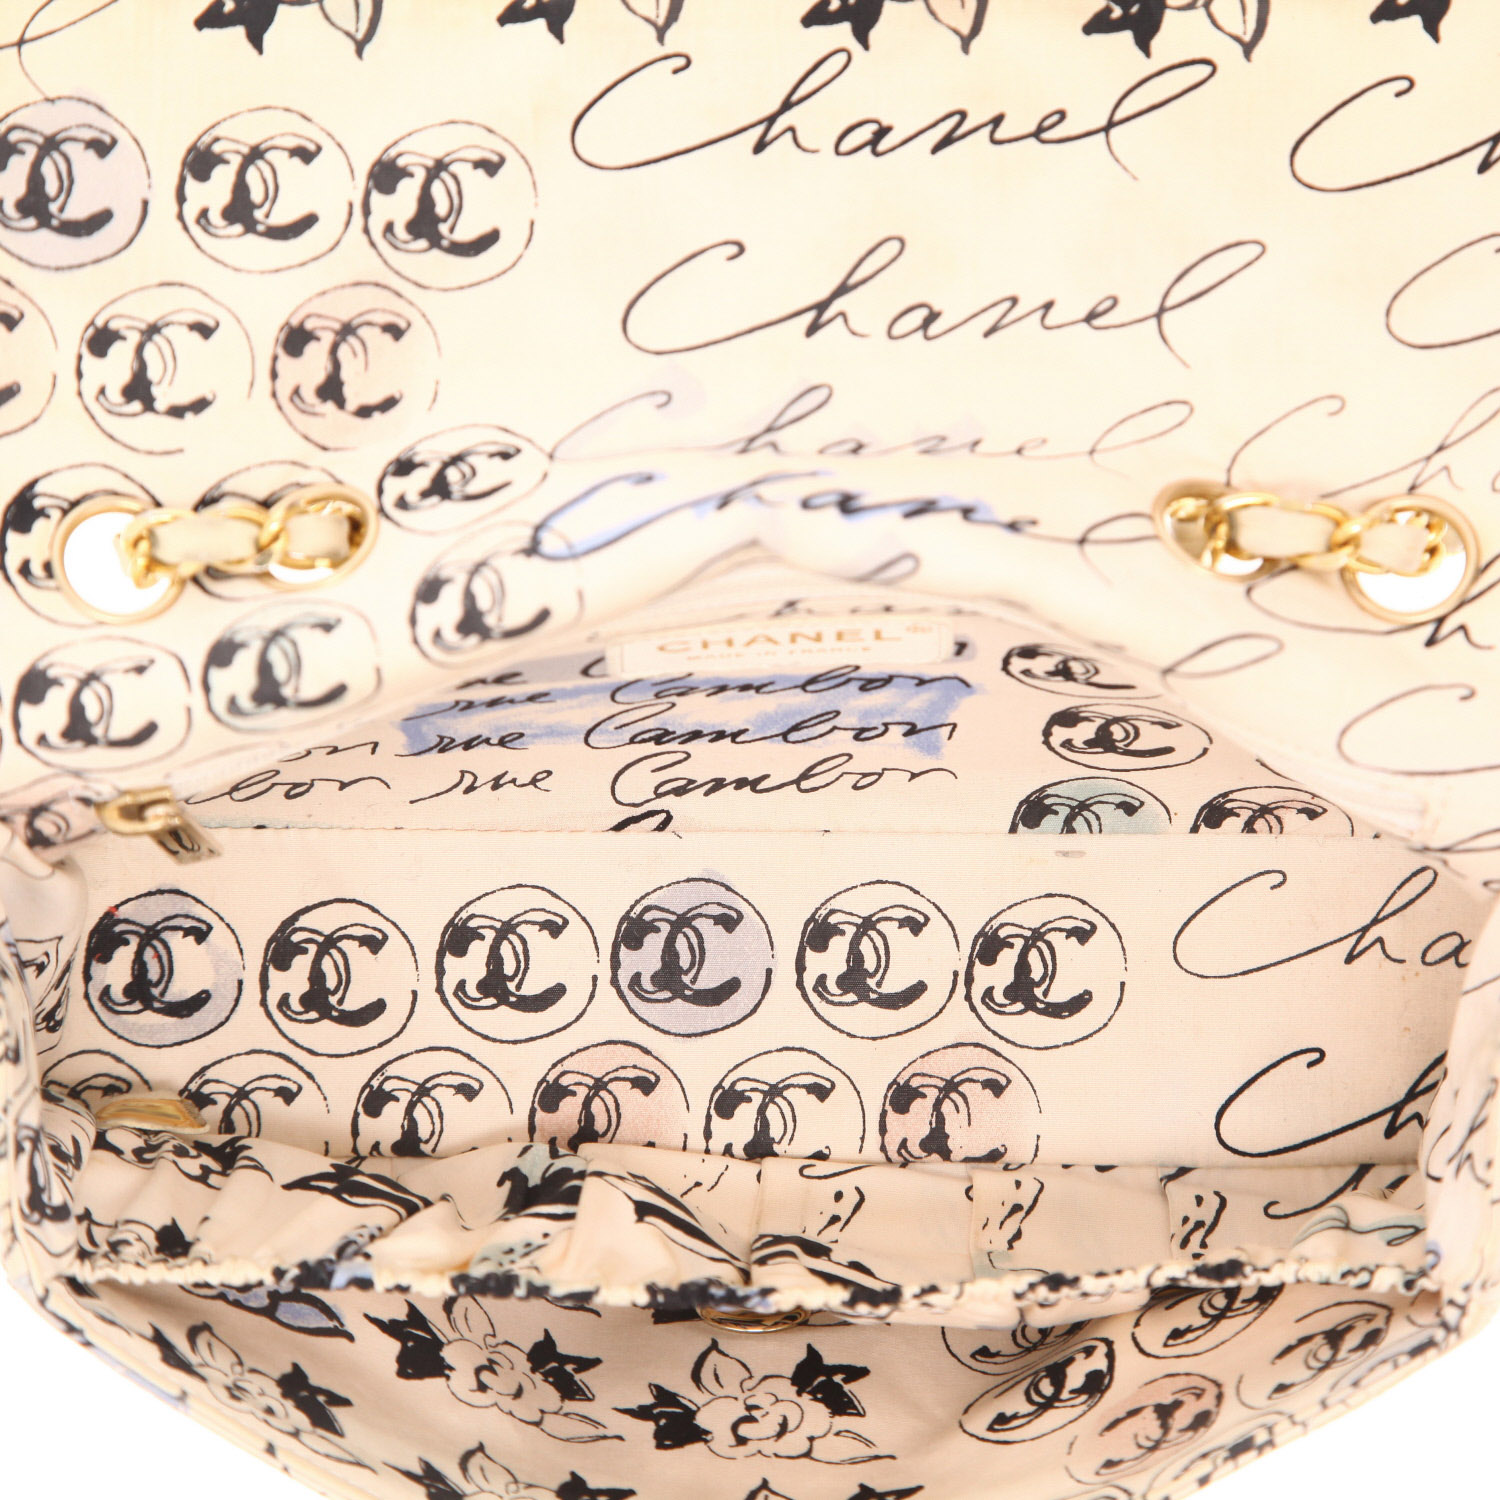 Chanel
Chanel
Chanel
Chanel
CHANEL
MADE IN FRANCE
rue Cambon
rue Cambon
rue Cambon
Cha
Ch